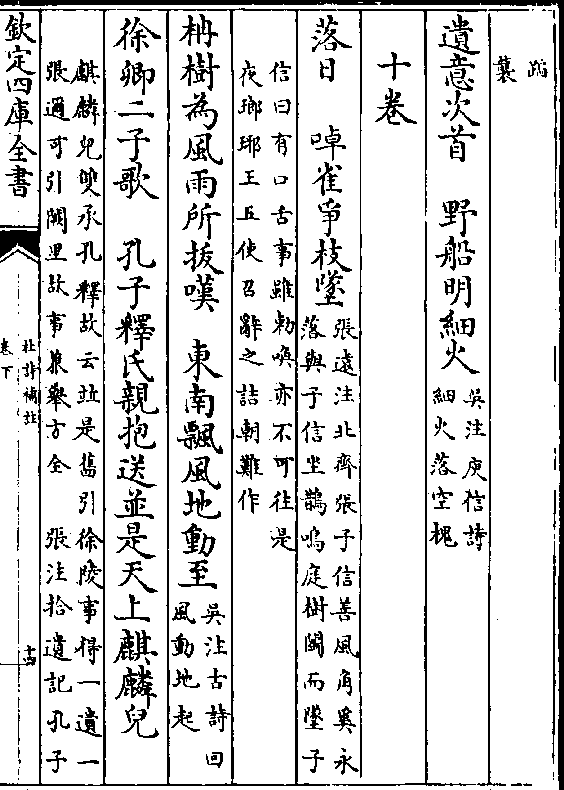 蹈
襲
遺意次首　野船明細火
吳注庾信詩
細火落空槐
十卷
落日　啅雀爭枝墜
張遠注北齊張子信善風角奚永
落與子信坐鵲鳴庭樹鬬而墮子
信曰有口舌事雖勅喚亦不可往是
夜瑯琊王五使召辭之詰朝難作
柟樹為風雨所拔嘆　東南飄風地動至
吳注古詩回
風動地起
徐卿二子歌　孔子釋氏親抱送並是天上麒麟兒
麒麟兒雙承孔釋故云並是舊引徐陵事得一遺一
張邇可引闕里故事兼舉方全　張注拾遺記孔子
欽定四庫全書
杜詩補註
卷下
十四